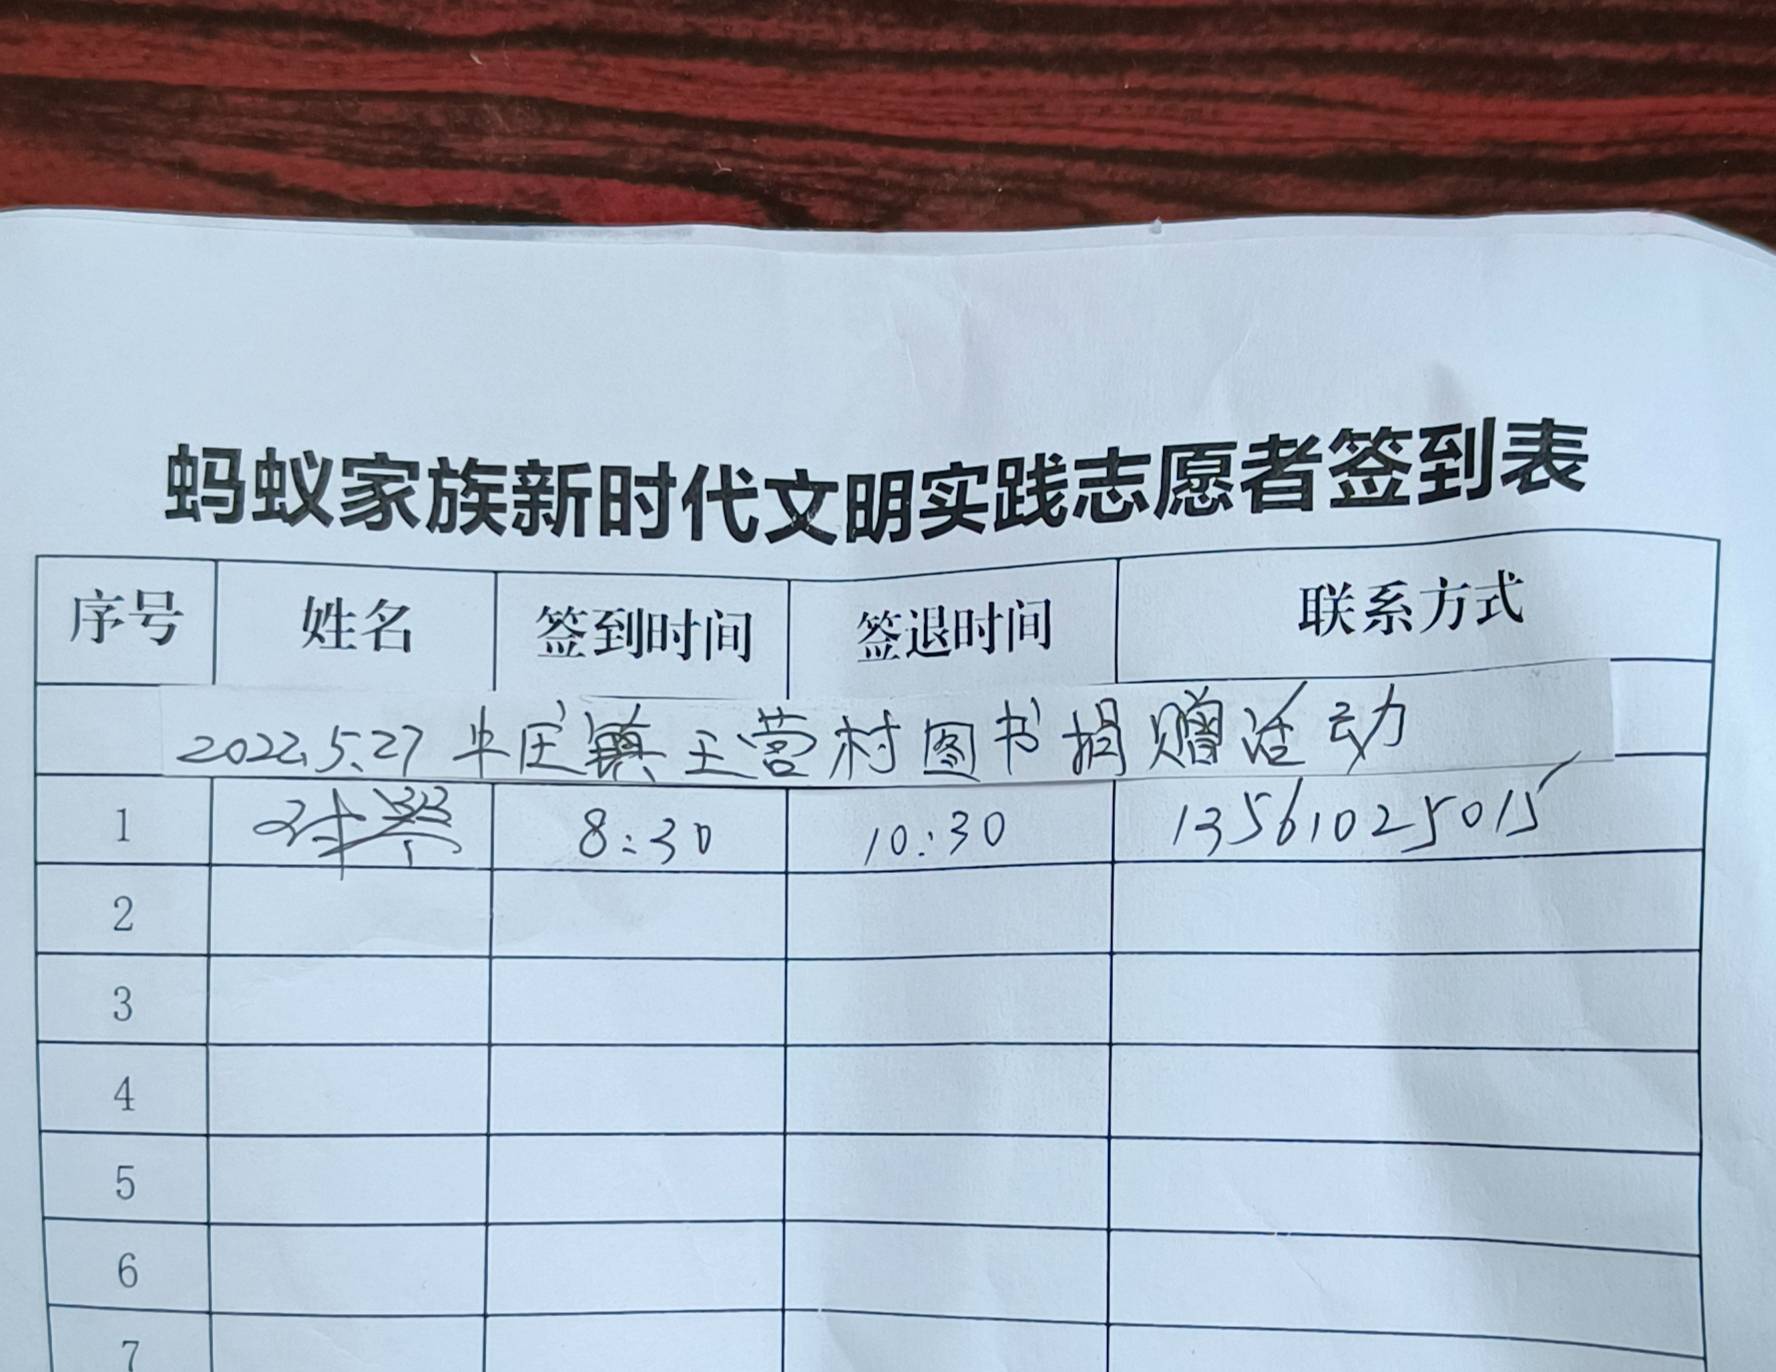 蚂蚁家族新时代文明实践志愿者签到表
序号 姓名 签到时间 签退时间 联系方式
2022.5.27 庄镇王营村图书捐赠活动
1 8:30 10:30 13561025015
2
3
4
5
6
7